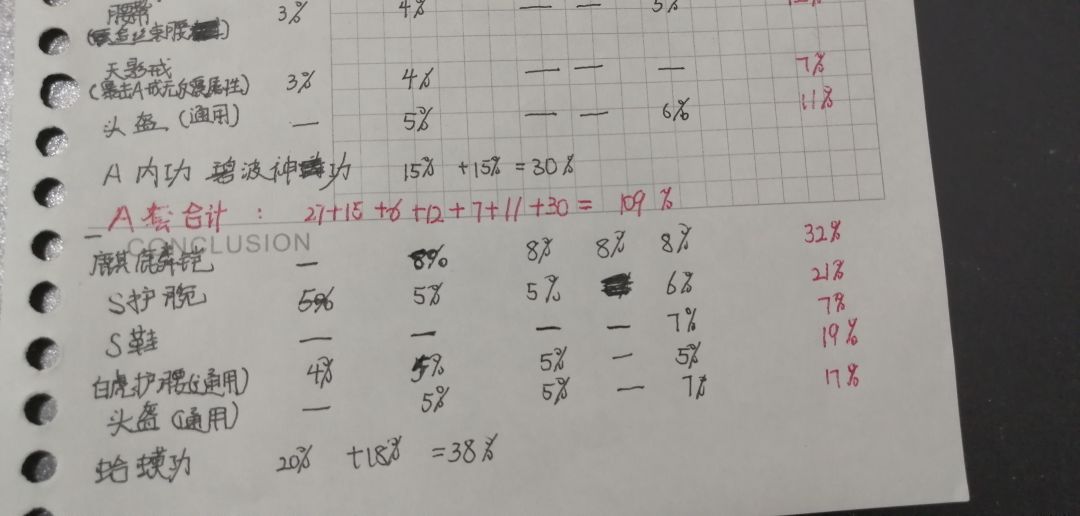 腰带 3% 4% — — 5% 12%
天影戒 3% 4% — — — 7%
(暴击A戒无尔暴属性)
头盔(通用) — 5% — — 6% 11%
A内功 碧波神功 15% +15% = 30%
A套合计: 27+15+6+12+7+11+30= 109%
CONCLUSION
麒麟铠 — 8% 8% 8% 8% 32%
S护腕 5% 5% 5% 6% 21%
S鞋 — — — — 7% 7%
白虎护腰(通用) 4% 5% 5% — 5% 19%
头盔(通用) — 5% 5% — 7% 17%
蛤蟆功 20% +18% =38%